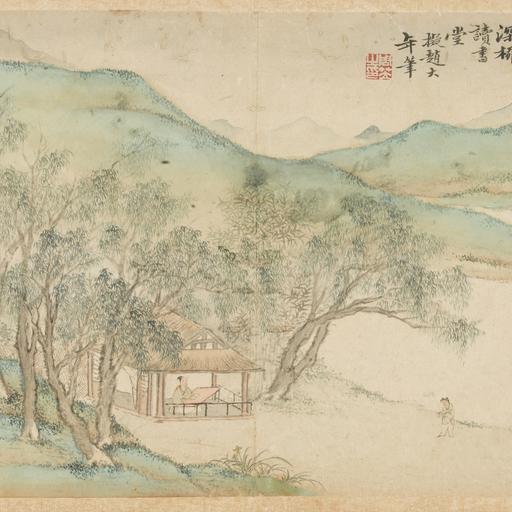 深柳
讀書
堂
擬趙大
年筆